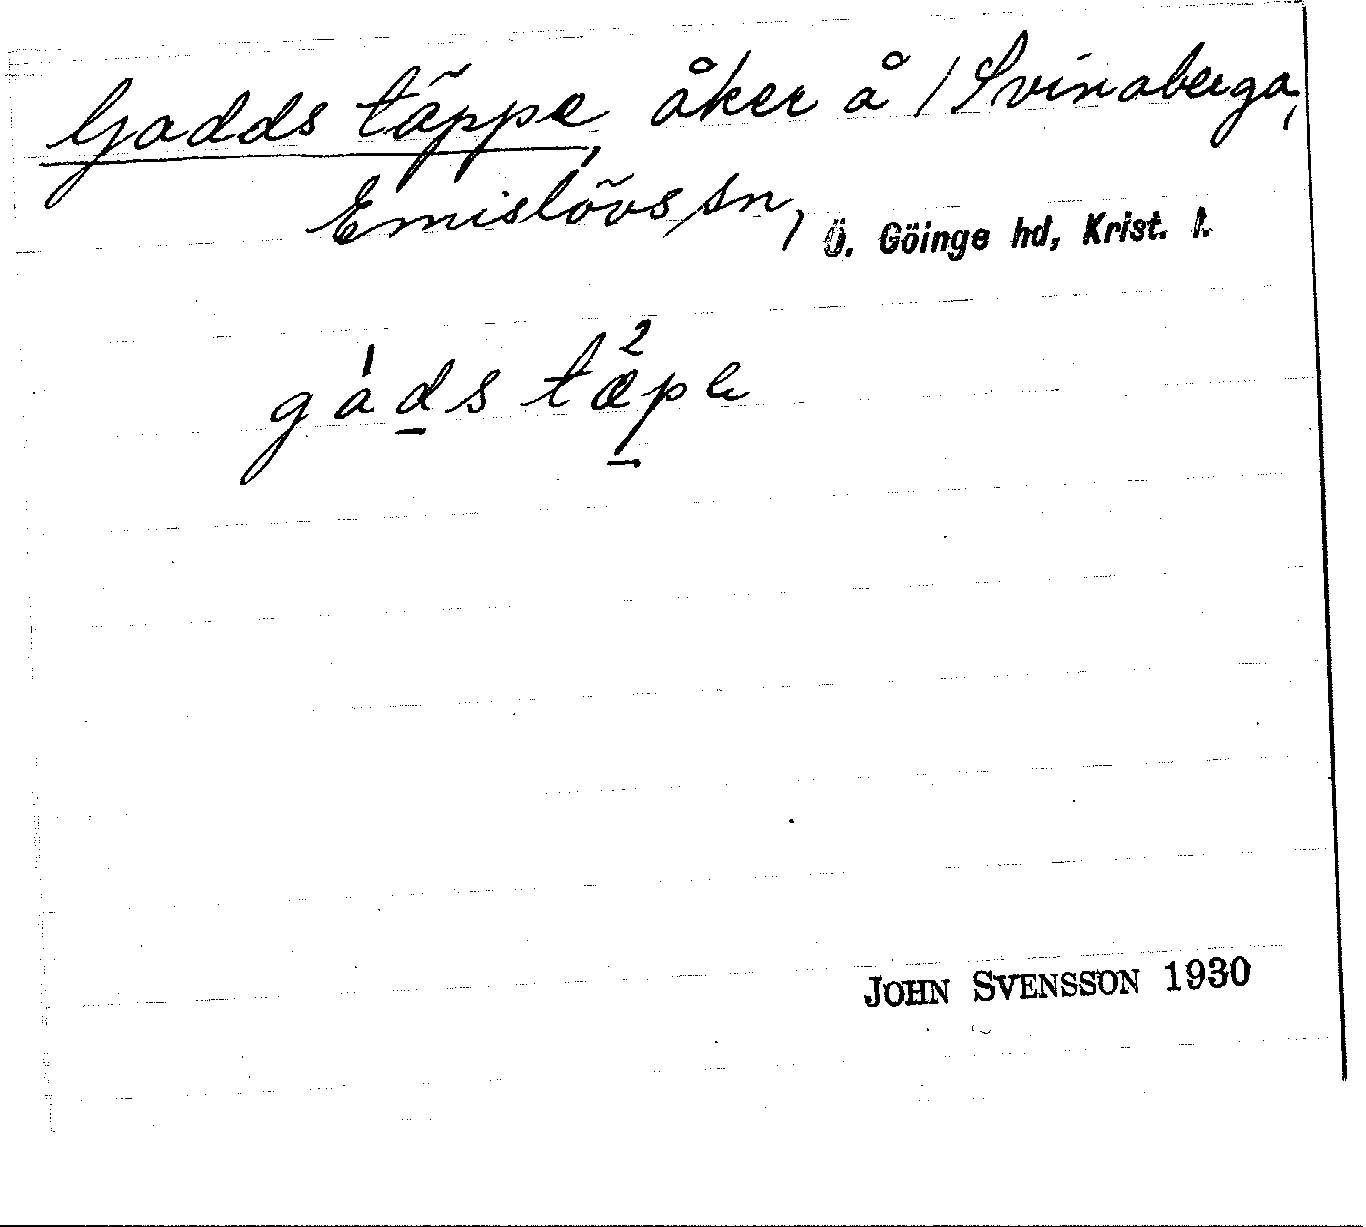 Gadds täppe, åker å /Svinaberga,
Emislövs sn, Ö. Göinge hd, Krist. l.
gáds tæ²pe
JOHN SVENSSON 1930